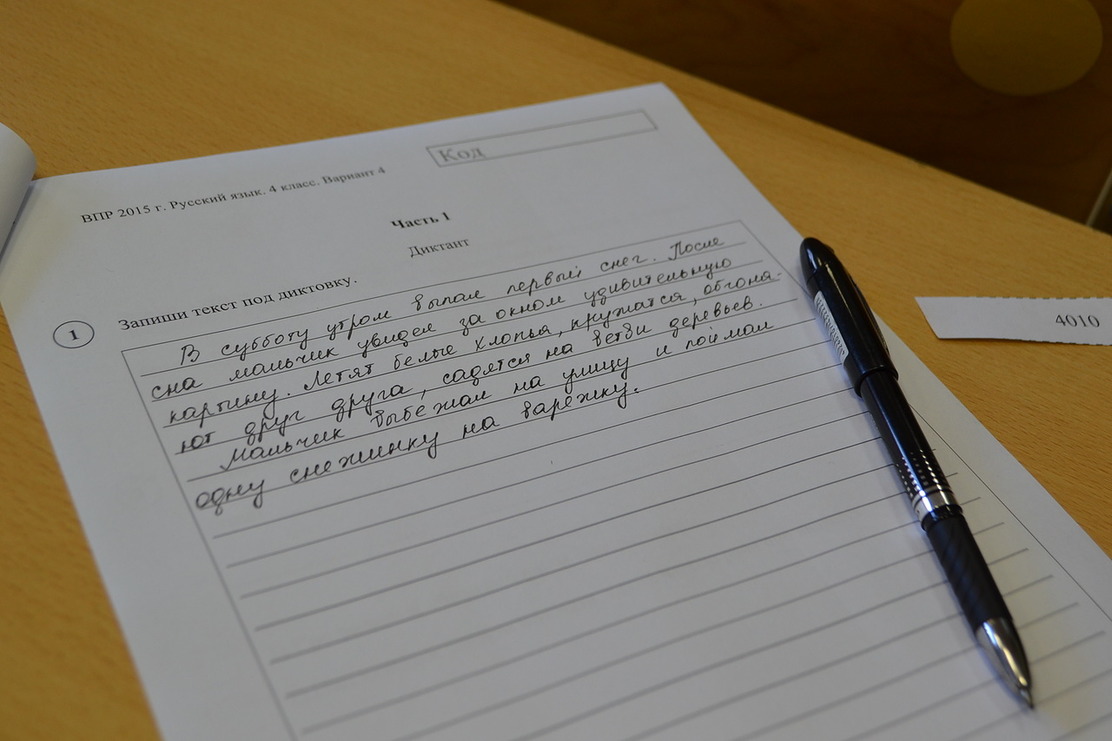 Код
ВПР 2015 г. Русский язык. 4 класс. Вариант 4
Часть 1
Диктант
1 Запиши текст под диктовку.
В субботу утром выпал первый снег. После
сна мальчик увидел за окном удивительную
картину. Летят белые хлопья, кружатся, обгоня-
ют друг друга, садятся на ветви деревьев.
Мальчик выбежал на улицу и поймал
одну снежинку на варежку.
4010